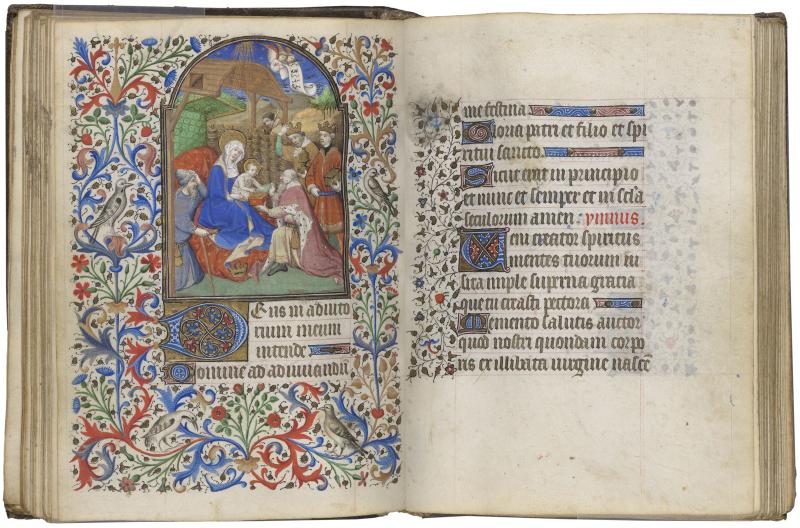 Deus in adiuto
rium meum
intende
Domine ad adiuuandū
me festina
Gloria patri et filio et spi
ritui sancto
Sicut erat in principio
et nunc et semper et in sc̄la
seculorum amen ymnus
Ueni creator spiritus
mentes tuorum ui
sita imple superna gracia
que tu creasti pectora
Memento salutis auctor
quod nostri quondam corpo
ris ex illibata uirgine nascē